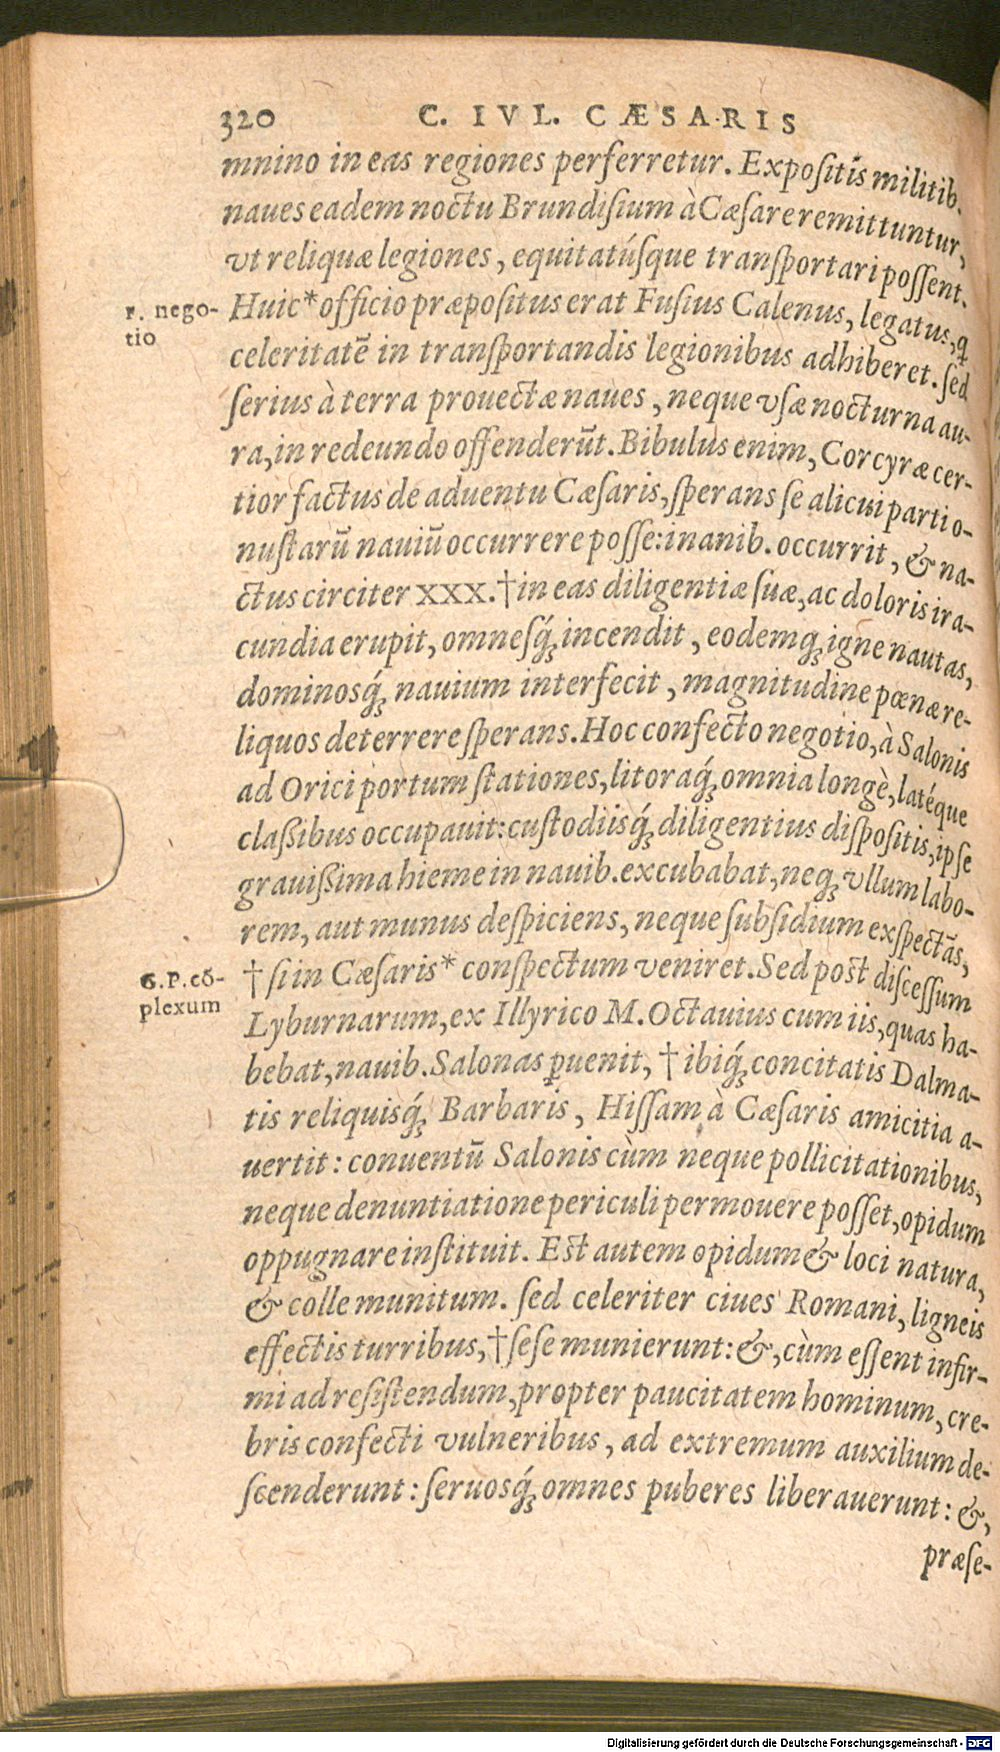 320 C. IVL. CÆSARIS
mnino in eas regiones perferretur. Expositis militib.
naues eadem noctu Brundisium à Cæsare remittuntur,
vt reliquæ legiones, equitatúsque transportari possent.
r. nego-
tio
Huic* officio præpositus erat Fusius Calenus, legatus, ꝗ
celeritatẽ in transportandis legionibus adhiberet. sed
serius à terra prouectæ naues, neque vsæ nocturna au-
ra, in redeundo offenderũt. Bibulus enim, Corcyræ cer-
tior factus de aduentu Cæsaris, sperans se alicui parti o-
nustarũ nauiũ occurrere posse: inanib. occurrit, & na-
ctus circiter XXX. † in eas diligentiæ suæ, ac doloris ira-
cundia erupit, omnesq́; incendit, eodemq; igne nautas,
dominosq́; nauium interfecit, magnitudine pœnæ re-
liquos deterrere sperans. Hoc confecto negotio, à Salonis
ad Orici portum stationes, litoraq́; omnia longè, latéque
classibus occupauit: custodiisq́; diligentius dispositis, ipse
grauissima hieme in nauib. excubabat, neq; vllum labo-
rem, aut munus despiciens, neque subsidium exspectãs,
6. P. cō-
plexum
† si in Cæsaris* conspectum veniret. Sed post discessum
Lyburnarum, ex Illyrico M. Octauius cum iis, quas ha-
bebat, nauib. Salonas ꝑuenit, † ibiq́; concitatis Dalma-
tis reliquisq́; Barbaris, Hissam à Cæsaris amicitia a-
uertit: conuentũ Salonis cùm neque pollicitationibus,
neque denuntiatione periculi permouere posset, opidum
oppugnare instituit. Est autem opidum & loci natura,
& colle munitum. sed celeriter ciues Romani, ligneis
effectis turribus, † sese munierunt: &, cùm essent infir-
mi ad resistendum, propter paucitatem hominum, cre-
bris confecti vulneribus, ad extremum auxilium de-
scenderunt: seruosq́; omnes puberes liberauerunt: &,
præse-
Digitalisierung gefördert durch die Deutsche Forschungsgemeinschaft - DFG